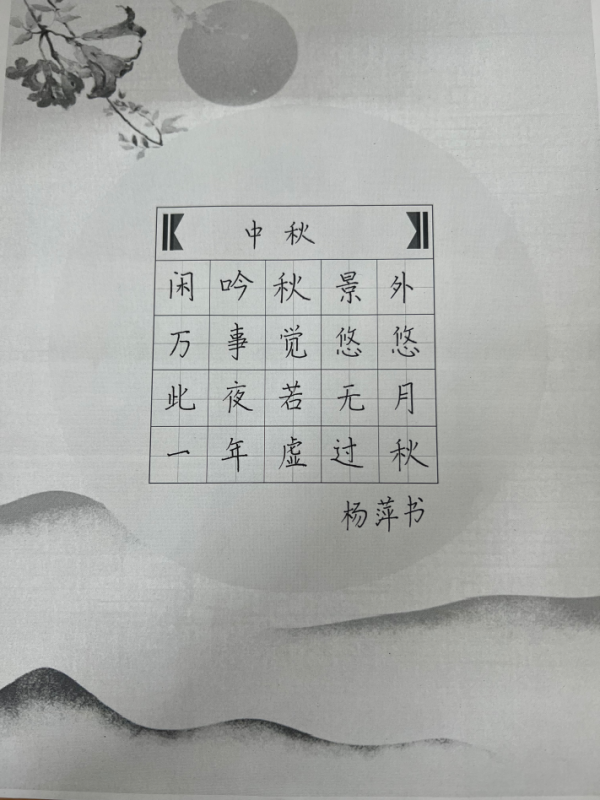 中秋
闲吟秋景外
万事觉悠悠
此夜若无月
一年虚过秋
杨萍书